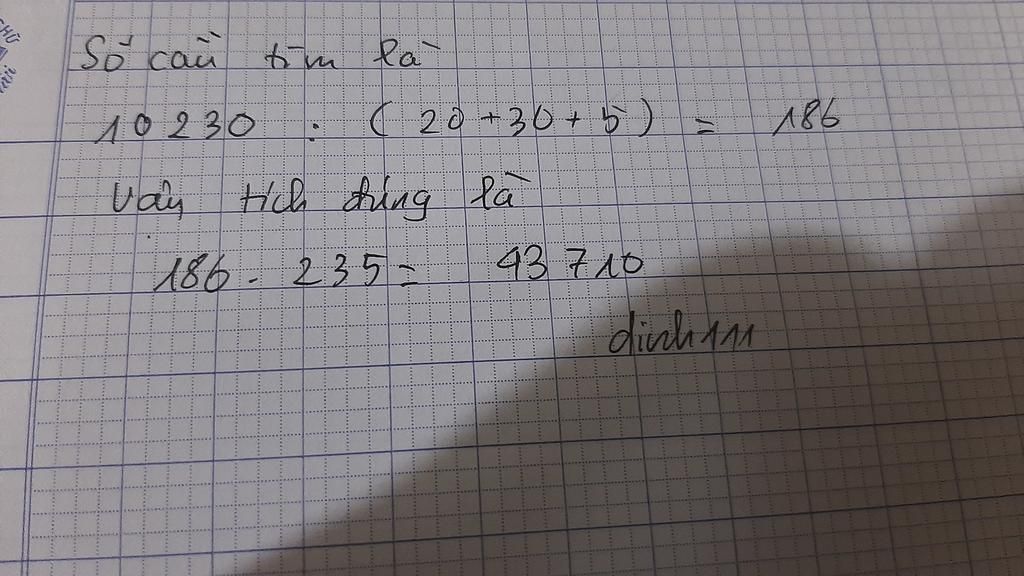 Số cần tìm là
10 230 : ( 20 + 30 + 5 ) = 186
Vậy tích đúng là
186 . 235 = 43 710
dinh111